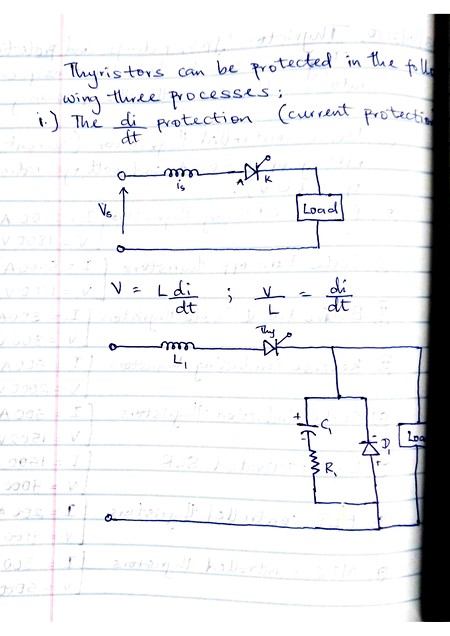 Thyristors can be protected in the follo
wing three processes;
i.) The di/dt protection (current protectio
is A K
Vs Load
V = L di/dt ; V/L = di/dt
Thy
L1
+ C1
- D1 Loa
R1 +